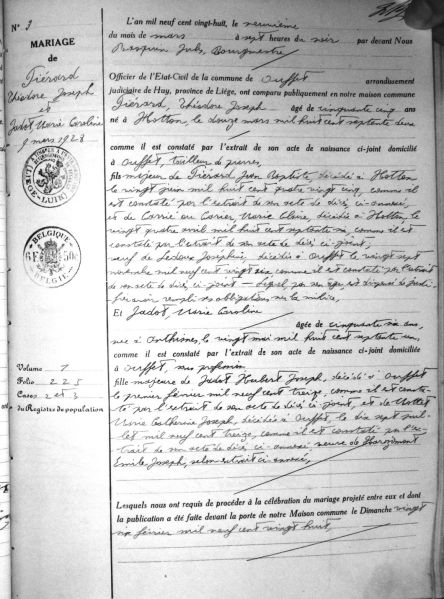 N° 9
MARIAGE
de
Tiérard
Théodore Joseph
et
Jadot Marie Caroline
9 mars 1928
BELGIQUE
BELGIË
Volume 1
Folio 225
Cases 2 et 3
du Registre de population
L'an mil neuf cent vingt-huit, le neuvième
du mois de mars à sept heures du soir par devant Nous
Jules, Bourgmestre
Officier de l'Etat-Civil de la commune de Ouffet arrondissement
judiciaire de Huy, province de Liége, ont comparu publiquement en notre maison commune
Tiérard, Théodore Joseph âgé de cinquante cinq ans
né à Hotton, le douze mars mil huit cent septante deux
comme il est constaté par l'extrait de son acte de naissance ci-joint domicilié
à Ouffet, tailleur de pierres,
fils majeur de Tiérard Jean Baptiste, décédé à Hotton,
le vingt juin mil huit cent quatre vingt cinq, comme il
est constaté par l'extrait de son acte de décès ci-annexé,
et de Marie Claire, décédée à Hotton, le
vingt quatre avril mil huit cent septante six, comme il est
constaté par l'extrait de son acte de décès ci-joint;
veuf de Ledoux Joséphine, décédée à Ouffet le vingt sept
novembre mil neuf cent vingt six comme il est constaté par l'extrait
de son acte de décès, ci-joint — par son âge, est dispensé de
avoir rempli ses obligations sur la milice,
Et Jadot Marie Caroline
âgée de cinquante six ans,
née à Anthisnes, le vingt mai mil huit cent septante un,
comme il est constaté par l'extrait de son acte de naissance ci-joint domiciliée
à Ouffet, sans profession
fille majeure de Jadot Hubert Joseph, décédé à Ouffet
le premier février mil neuf cent treize, comme il est consta-
té par l'extrait de son acte de décès ci-joint, et de
Marie Catherine Joseph, décédée à Ouffet, le dix sept juil-
let mil neuf cent treize, comme il est constaté par l'ex-
trait de son acte de décès, ci-annexé veuve de
Emile Joseph, selon extrait ci-annexé,
Lesquels nous ont requis de procéder à la célébration du mariage projeté entre eux et dont
la publication a été faite devant la porte de notre Maison commune le Dimanche vingt
six février mil neuf cent vingt huit,